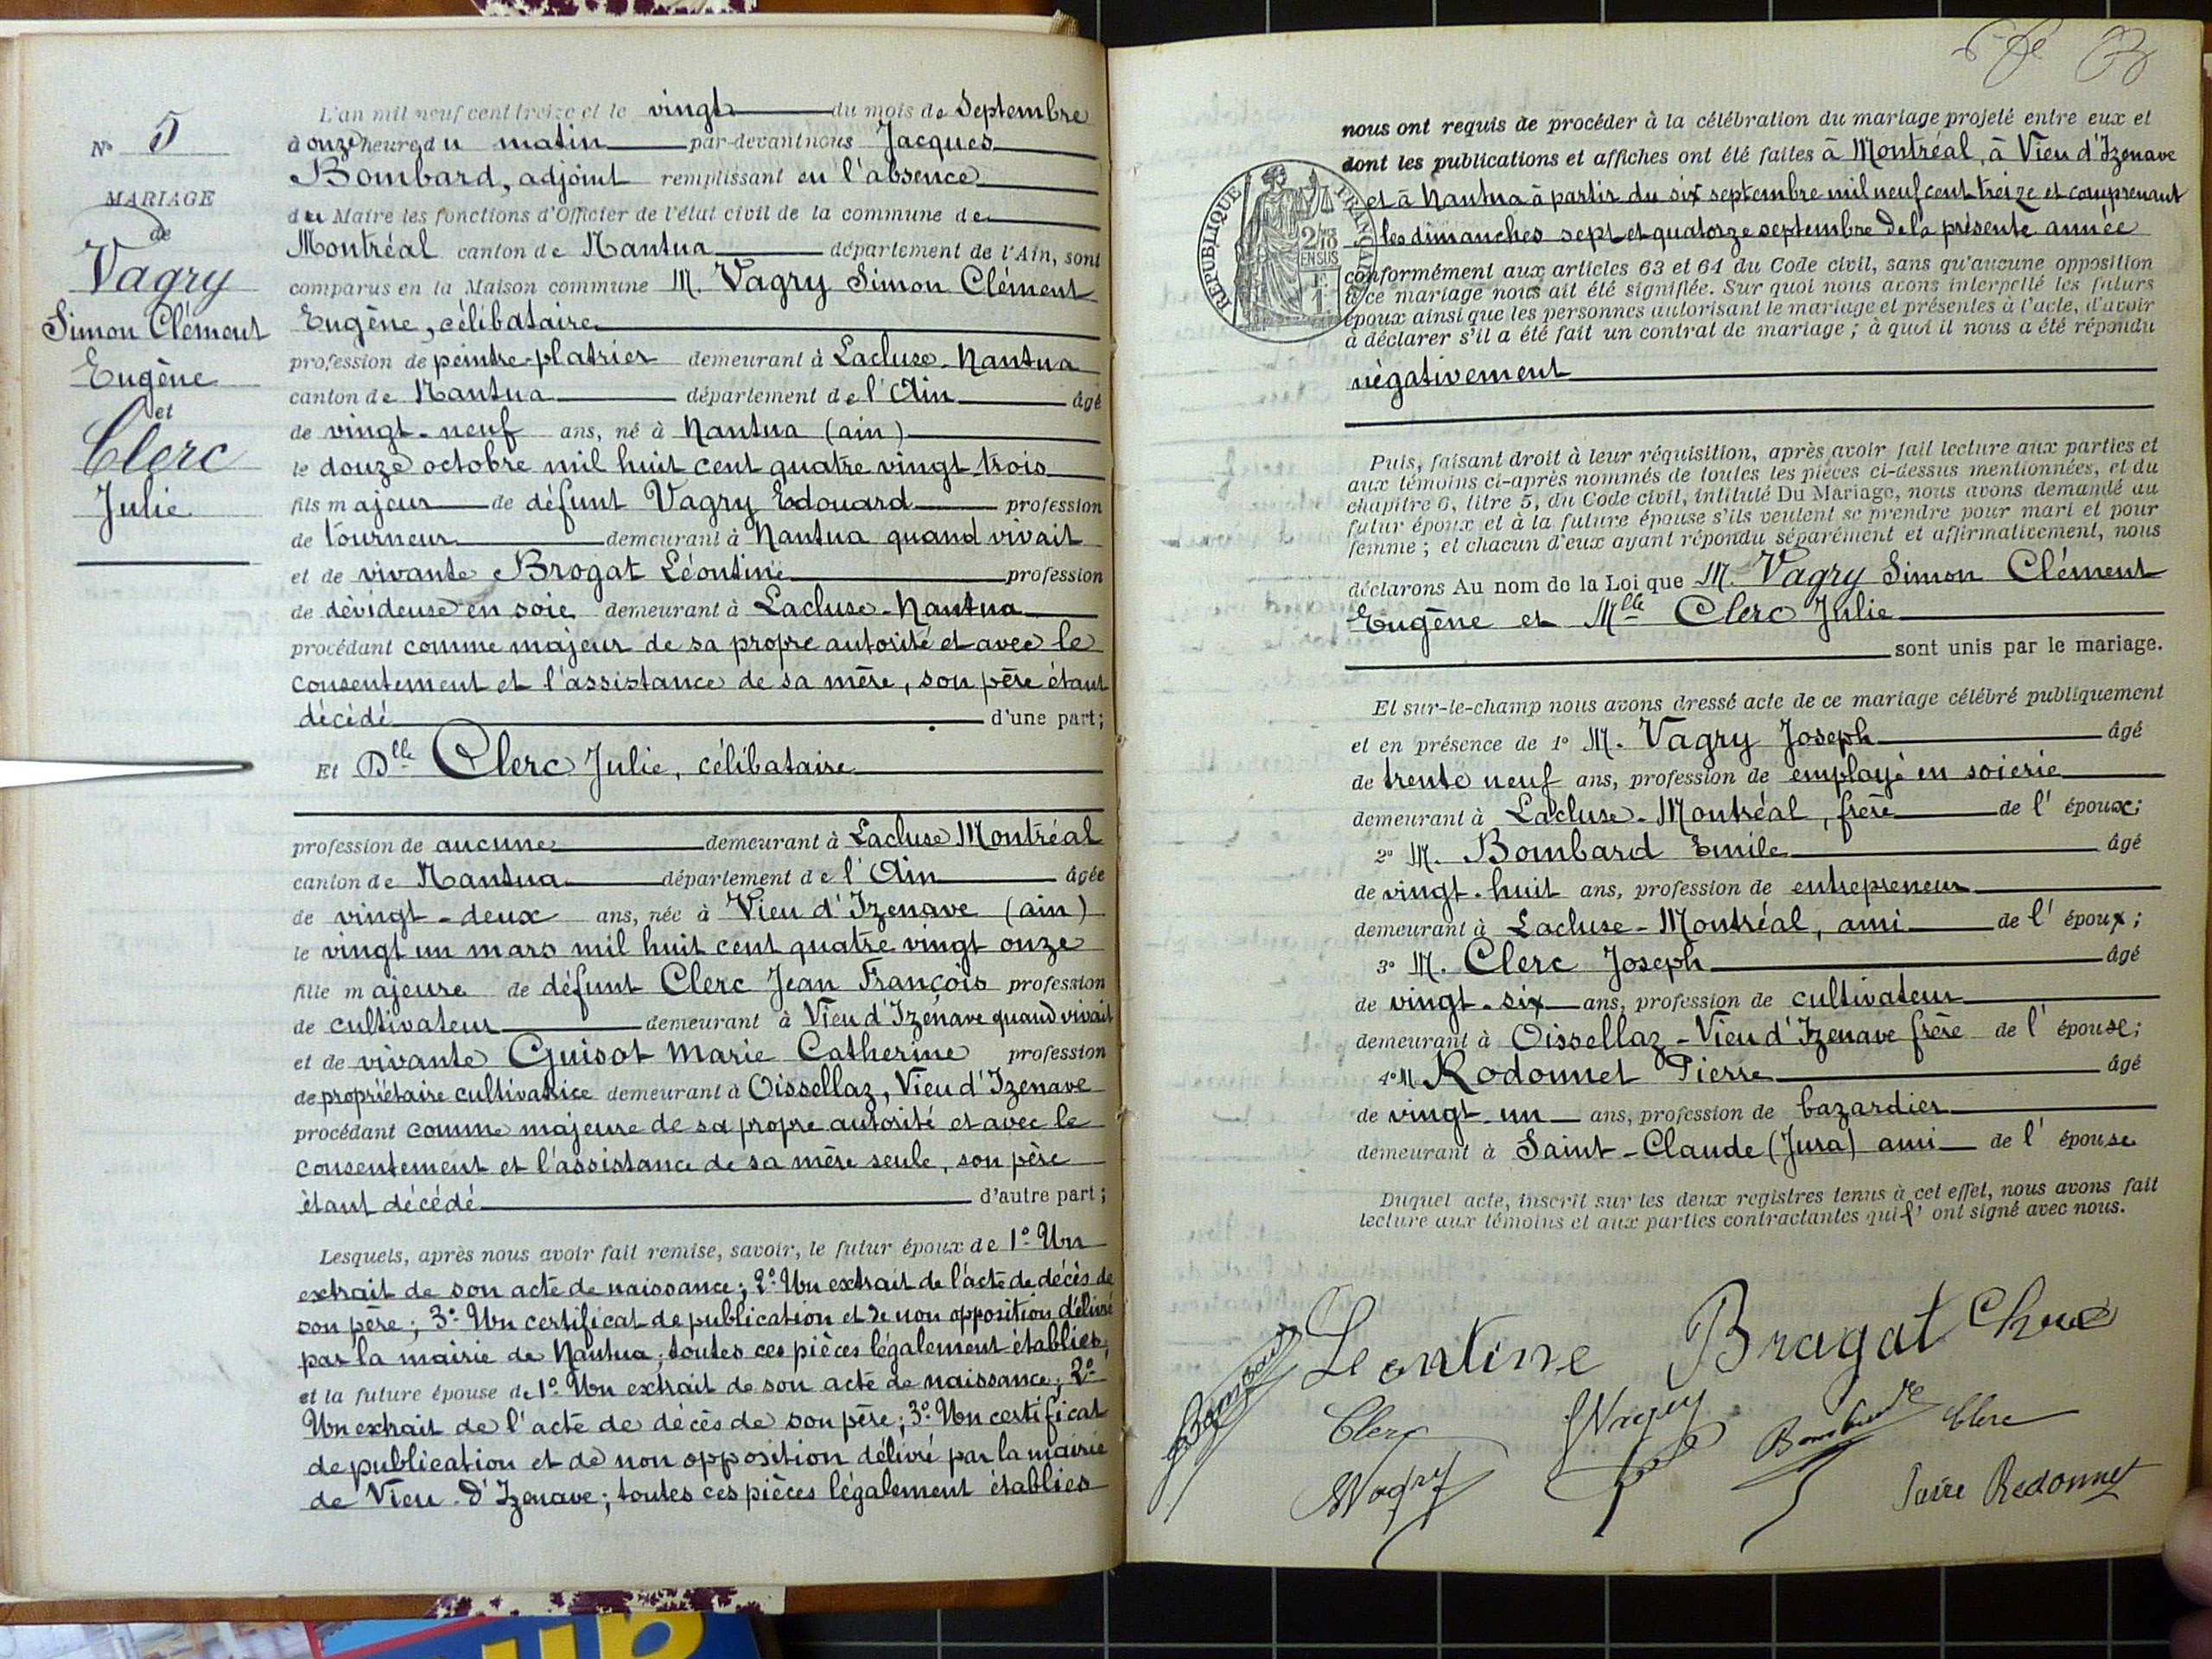 N° 5
MARIAGE
de
Vagry
Simon Clément
Eugène
et
Clerc
Julie
L'an mil neuf cent treize et le vingt du mois de Septembre
à onze heures du matin par-devant nous Jacques
Bombard, adjoint remplissant en l'absence
du Maire les fonctions d'Officier de l'état civil de la commune de
Montréal canton de Nantua département de l'Ain, sont
comparus en la Maison commune M. Vagry Simon Clément
Eugène, célibataire
profession de peintre-platrier demeurant à Lacluse-Nantua
canton de Nantua département de l'Ain âgé
de vingt-neuf ans, né à Nantua (ain)
le douze octobre mil huit cent quatre vingt trois
fils majeur de défunt Vagry Edouard profession
de tourneur demeurant à Nantua quand vivait
et de vivante Brogat Léontine profession
de dévideuse en soie demeurant à Lacluse-Nantua
procédant comme majeur de sa propre autorité et avec le
consentement et l'assistance de sa mère, son père étant
décédé d'une part;
Et Dlle Clerc Julie, célibataire
profession de aucune demeurant à Lacluse Montréal
canton de Nantua département de l'Ain âgée
de vingt-deux ans, née à Vieu d'Izenave (ain)
le vingt un mars mil huit cent quatre vingt onze
fille majeure de défunt Clerc Jean François profession
de cultivateur demeurant à Vieu d'Izénave quand vivait
et de vivante Guisot Marie Catherine profession
de propriétaire cultivatrice demeurant à Oissellaz, Vieu d'Izenave
procédant comme majeure de sa propre autorité et avec le
consentement et l'assistance de sa mère seule, son père
étant décédé d'autre part;
Lesquels, après nous avoir fait remise, savoir, le futur époux de 1° Un
extrait de son acte de naissance; 2° Un extrait de l'acte de décès de
son père; 3° Un certificat de publication et de non opposition délivré
par la mairie de Nantua; toutes ces pièces légalement établies;
et la future épouse de 1° Un extrait de son acte de naissance; 2°
Un extrait de l'acte de décès de son père; 3° Un certificat
de publication et de non opposition délivré par la mairie
de Vieu-d'Izenave; toutes ces pièces légalement établies
nous ont requis de procéder à la célébration du mariage projeté entre eux et
dont les publications et affiches ont été faites à Montréal, à Vieu d'Izenave
et à Nantua à partir du six septembre mil neuf cent treize et comprenant
les dimanches sept et quatorze septembre de la présente année
RÉPUBLIQUE FRANÇAISE
2/10
EN SUS
conformément aux articles 63 et 64 du Code civil, sans qu'aucune opposition
à ce mariage nous ait été signifiée. Sur quoi nous avons interpellé les futurs
époux ainsi que les personnes autorisant le mariage et présentes à l'acte, d'avoir
à déclarer s'il a été fait un contrat de mariage; à quoi il nous a été répondu
négativement
Puis, faisant droit à leur réquisition, après avoir fait lecture aux parties et
aux témoins ci-après nommés de toutes les pièces ci-dessus mentionnées, et du
chapitre 6, titre 5, du Code civil, intitulé Du Mariage, nous avons demandé au
futur époux et à la future épouse s'ils veulent se prendre pour mari et pour
femme; et chacun d'eux ayant répondu séparément et affirmativement, nous
déclarons Au nom de la Loi que M. Vagry Simon Clément
Eugène et Mlle Clerc Julie
sont unis par le mariage.
Et sur-le-champ nous avons dressé acte de ce mariage célébré publiquement
et en présence de 1° M. Vagry Joseph âgé
de trente neuf ans, profession de employé en soierie
demeurant à Lacluse-Montréal, frère de l'époux;
2° M. Bombard Emile âgé
de vingt-huit ans, profession de entrepreneur
demeurant à Lacluse-Montréal, ami de l'époux;
3° M. Clerc Joseph âgé
de vingt-six ans, profession de cultivateur
demeurant à Oissellaz-Vieu d'Izenave frère de l'épouse;
4° M Rodonnet Pierre âgé
de vingt-un ans, profession de bazardier
demeurant à Saint-Claude (Jura) ami de l'épouse
Duquel acte, inscrit sur les deux registres tenus à cet effet, nous avons fait
lecture aux témoins et aux parties contractantes qui l'ont signé avec nous.
Leontine Bragat
Clerc Vagry Clerc
Vagry Redonnet